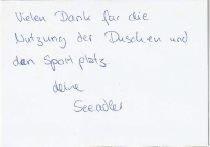 Vielen Dank für die
Nutzung der Duschen und
den Sportplatz
deine
Seeadler